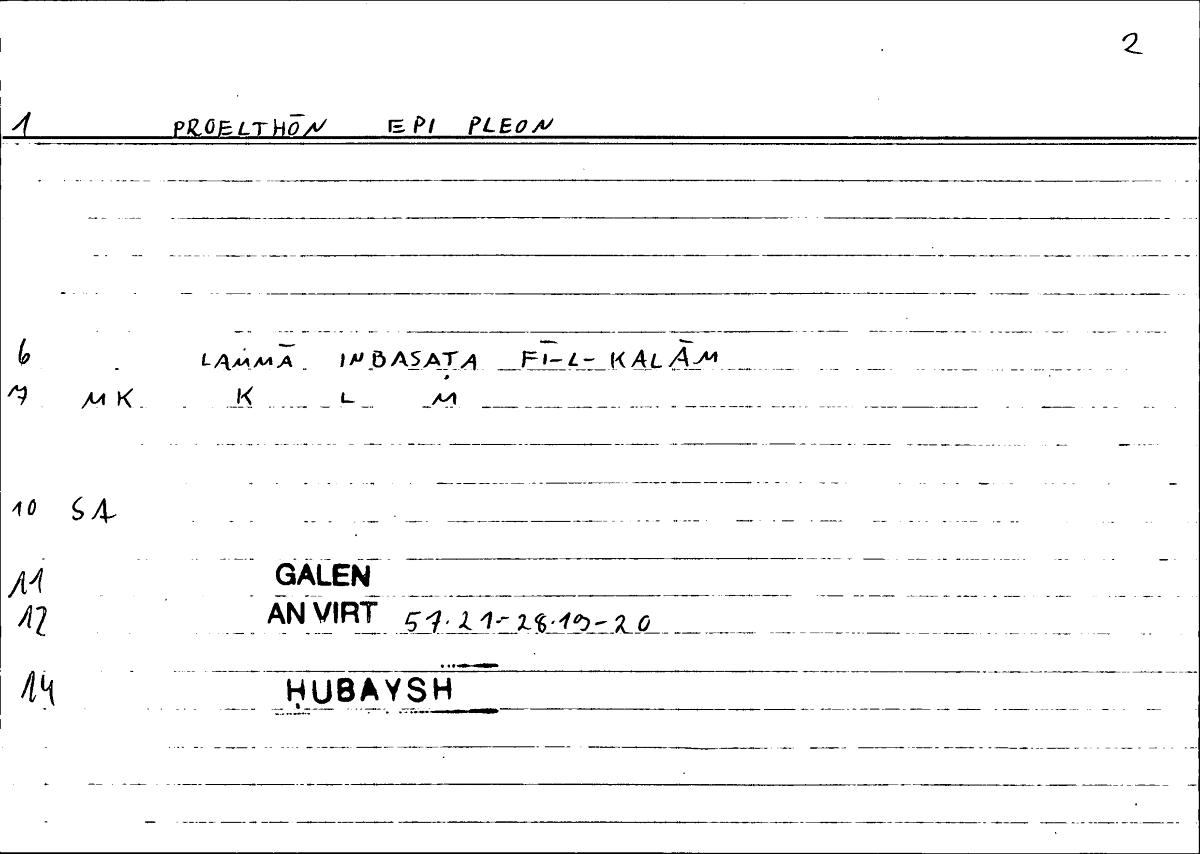 2
1 PROELTHŌN EPI PLEON
6 LAMMĀ INBASAṬA FĪ-L-KALĀM
7 MK K L M
10 SA
11 GALEN
12 AN VIRT 57.21-28.19-20
14 ḤUBAYSH